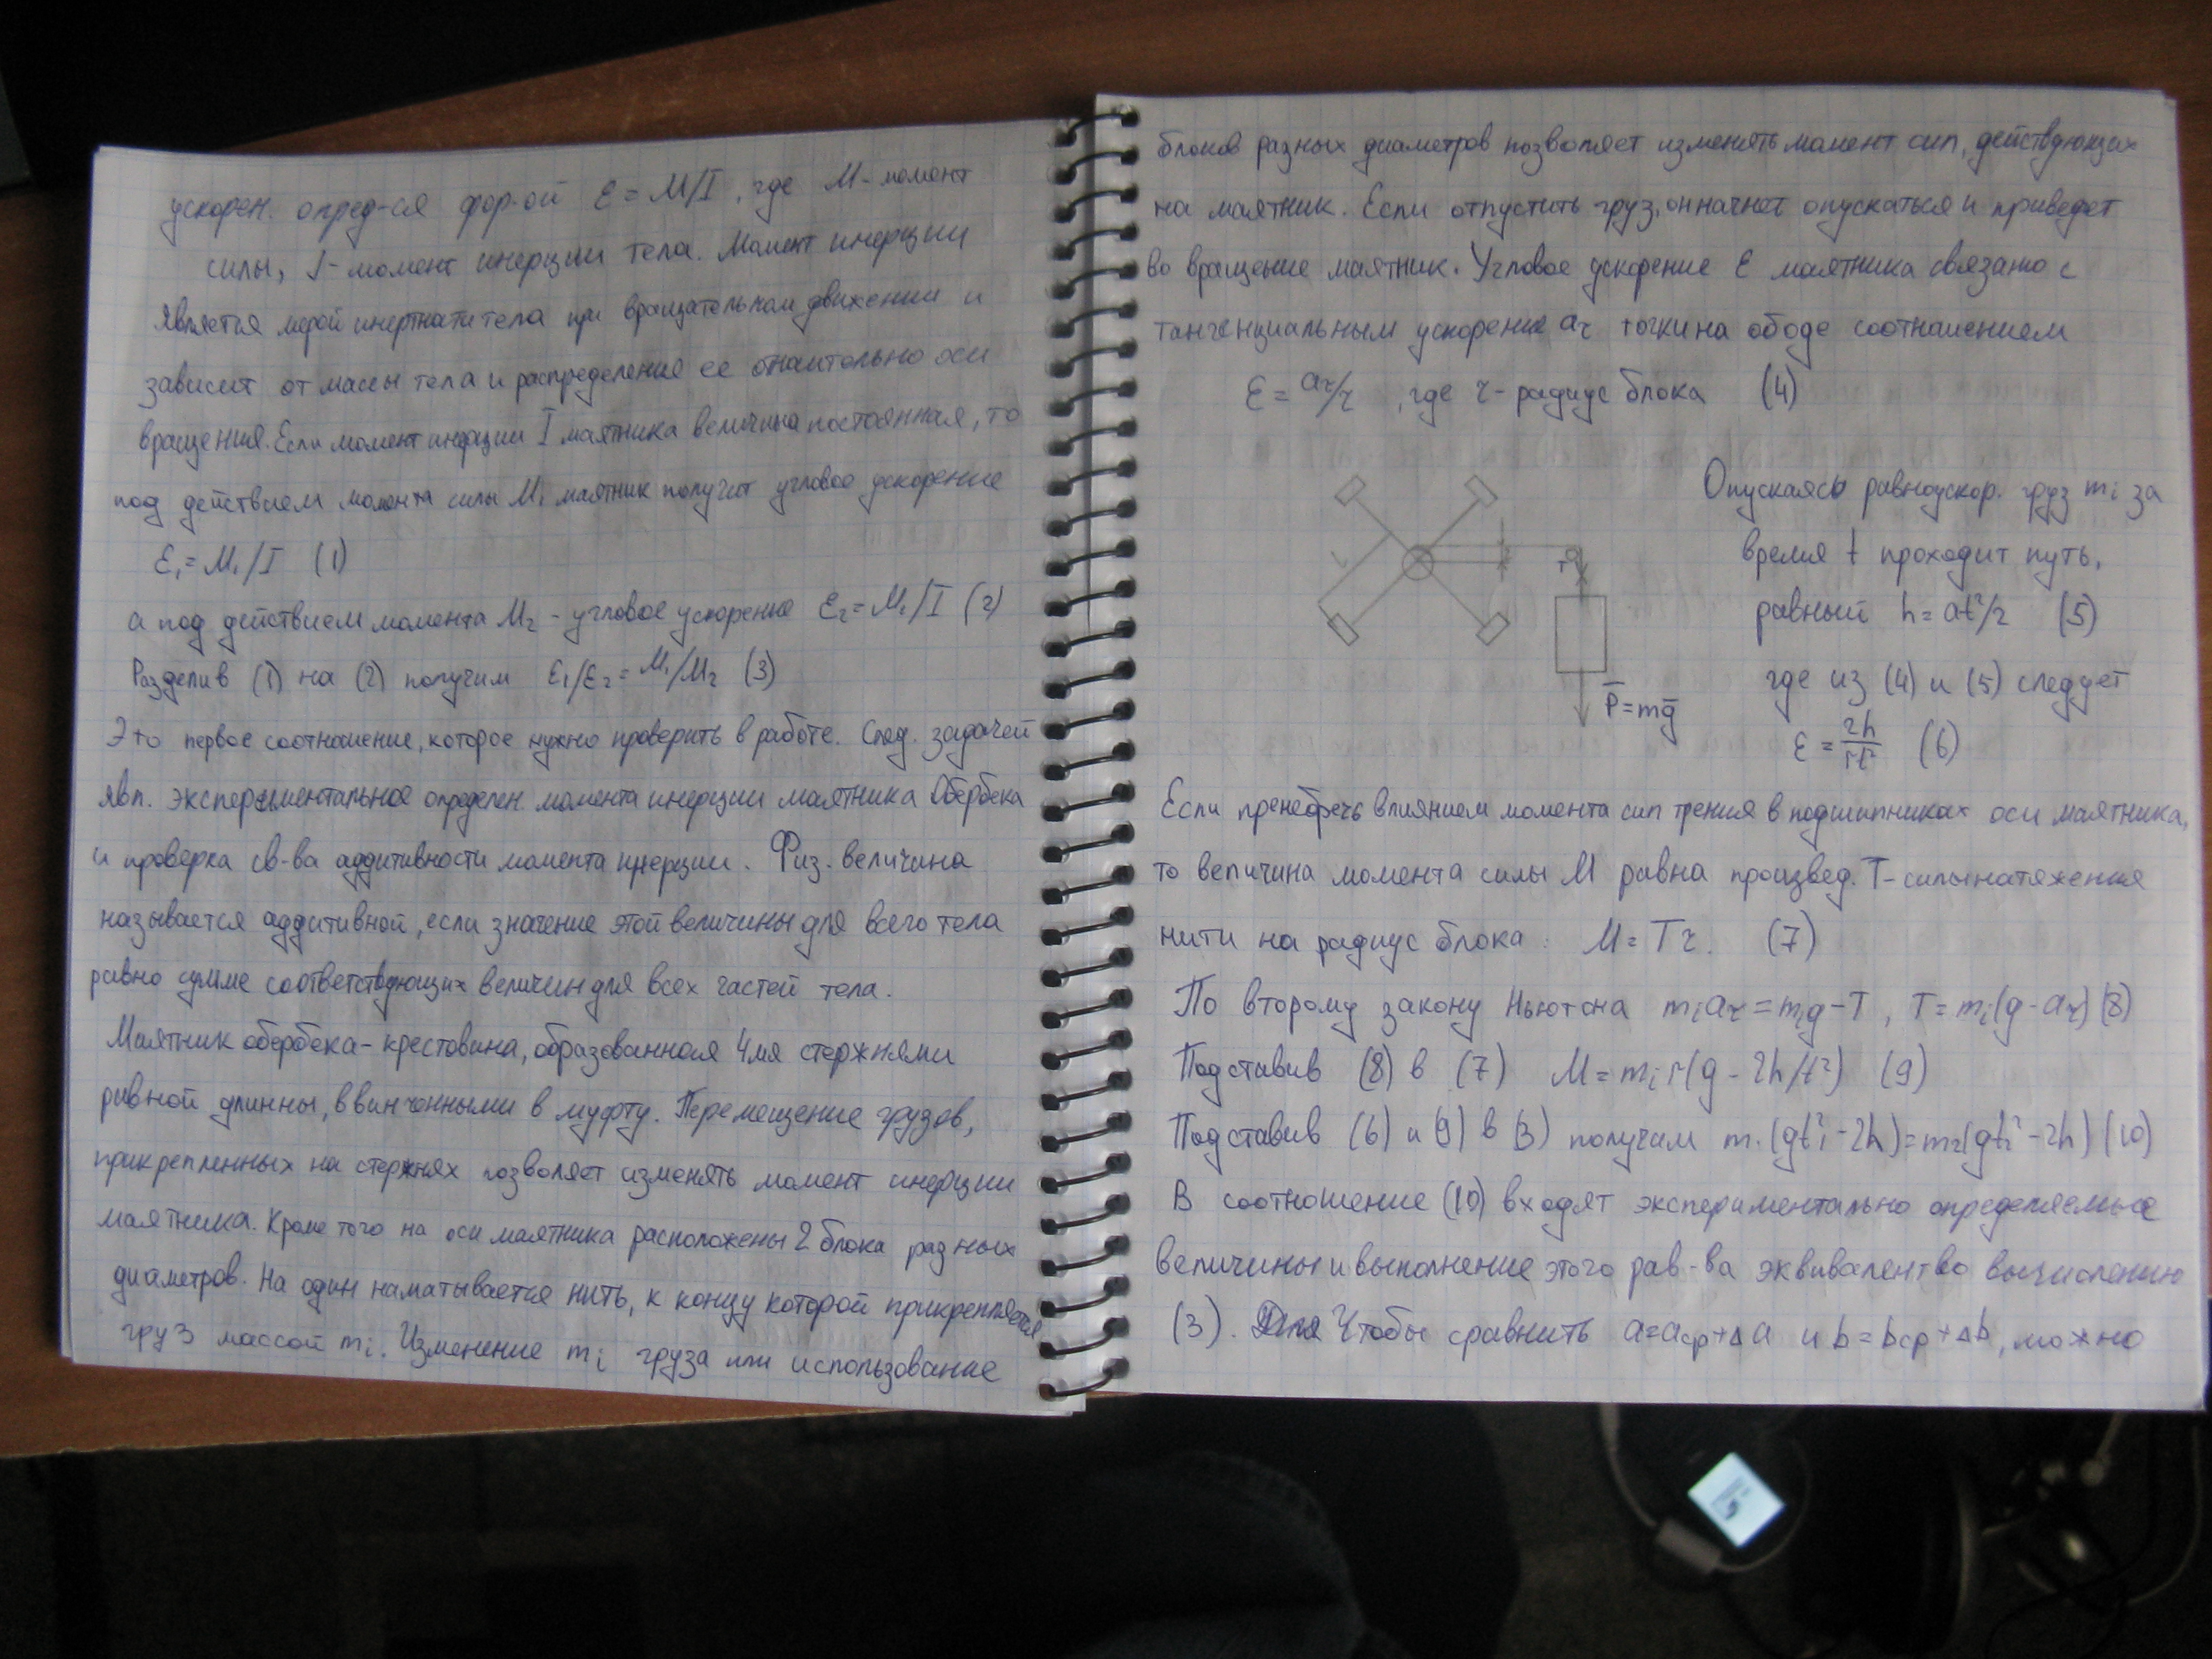 ускорен. опред-ся фор-ой ε = M/I, где M - момент
силы, I - момент инерции тела. Момент инерции
является мерой инертности тела при вращательном движении и
зависит от массы тела и распределения ее относительно оси
вращения. Если момент инерции I маятника величина постоянная, то
под действием момента силы M₁ маятник получит угловое ускорение
ε₁ = M₁/I (1)
а под действием момента M₂ - угловое ускорение ε₂ = M₂/I (2)
Разделив (1) на (2) получим ε₁/ε₂ = M₁/M₂ (3)
Это первое соотношение, которое нужно проверить в работе. След. задачей
явл. экспериментальное определен. момента инерции маятника Обербека
и проверка св-ва аддитивности момента инерции. Физ. величина
называется аддитивной, если значение этой величины для всего тела
равно сумме соответствующих величин для всех частей тела.
Маятник обербека - крестовина, образованная 4мя стержнями
равной длинны, ввинченными в муфту. Перемещение грузов,
прикрепленных на стержнях позволяет изменять момент инерции
маятника. Кроме того на оси маятника расположены 2 блока разных
диаметров. На один наматывается нить, к концу которой прикрепляется
груз массой mᵢ. Изменение mᵢ груза или использование
блоков разных диаметров позволяет изменять момент сил, действующих
на маятник. Если отпустить груз, он начнет опускаться и приведет
во вращение маятник. Угловое ускорение ε маятника связано с
тангенциальным ускорение aτ точки на ободе соотношением
ε = aτ/r, где r - радиус блока (4)
L
r
T
P̅ = mg̅
Опускаясь равноускор. груз mᵢ за
время t проходит путь,
равный h = at²/2 (5)
где из (4) и (5) следует
ε = 2h/rt² (6)
Если пренебречь влиянием момента сил трения в подшипниках оси маятника,
то величина момента силы M равна произвед. T - силы натяжения
нити на радиус блока: M = Tr. (7)
По второму закону Ньютона mᵢaτ = mᵢg - T, T = mᵢ(g - aτ) (8)
Подставив (8) в (7) M = mᵢr(g - 2h/t²) (9)
Подставив (6) и (9) в (3) получим m₁(gt₁² - 2h) = m₂(gt₂² - 2h) (10)
В соотношение (10) входят экспериментально определяемые
величины и выполнение этого рав-ва эквивалентно вычислению
(3). Для Чтобы сравнить a = aср + Δa и b = bср + Δb, можно